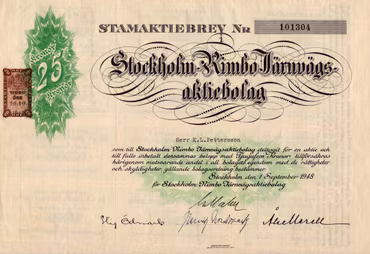 STAMAKTIEBREV Nr 101304
25
Stockholm-Rimbo Järnvägs-
aktiebolag
Herr K.L.Pettersson
som till Stockholm-Rimbo Järnvägsaktiebolag för en aktie och
till fullo inbetalt densammas belopp med Tjugofem Kronor tillförsäkras
härigenom motsvarande andel i all bolagets egendom med de rättigheter
och skyldigheter gällande bolagsordning bestämmer.
Stockholm den 1 September 1948
för Stockholm-Rimbo Järnvägsaktiebolag